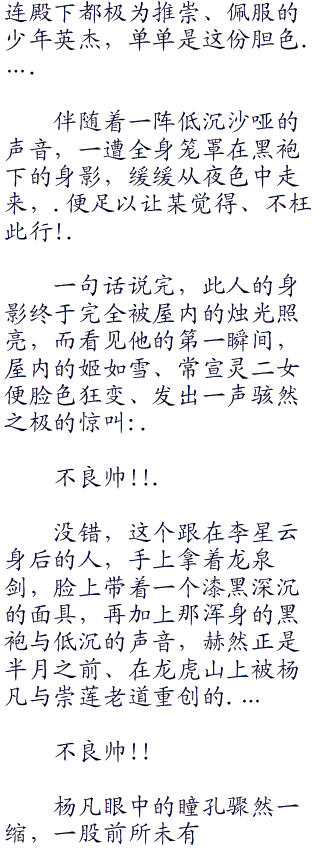 连殿下都极为推崇、佩服的
少年英杰，单单是这份胆色.
….
伴随着一阵低沉沙哑的
声音，一遭全身笼罩在黑袍
下的身影，缓缓从夜色中走
来，.便足以让某觉得、不枉
此行!.
一句话说完，此人的身
影终于完全被屋内的烛光照
亮，而看见他的第一瞬间，
屋内的姬如雪、常宣灵二女
便脸色狂变、发出一声骇然
之极的惊叫:.
不良帅!!.
没错，这个跟在李星云
身后的人，手上拿着龙泉
剑，脸上带着一个漆黑深沉
的面具，再加上那浑身的黑
袍与低沉的声音，赫然正是
半月之前、在龙虎山上被杨
凡与崇莲老道重创的. …
不良帅!!
杨凡眼中的瞳孔骤然一
缩，一股前所未有